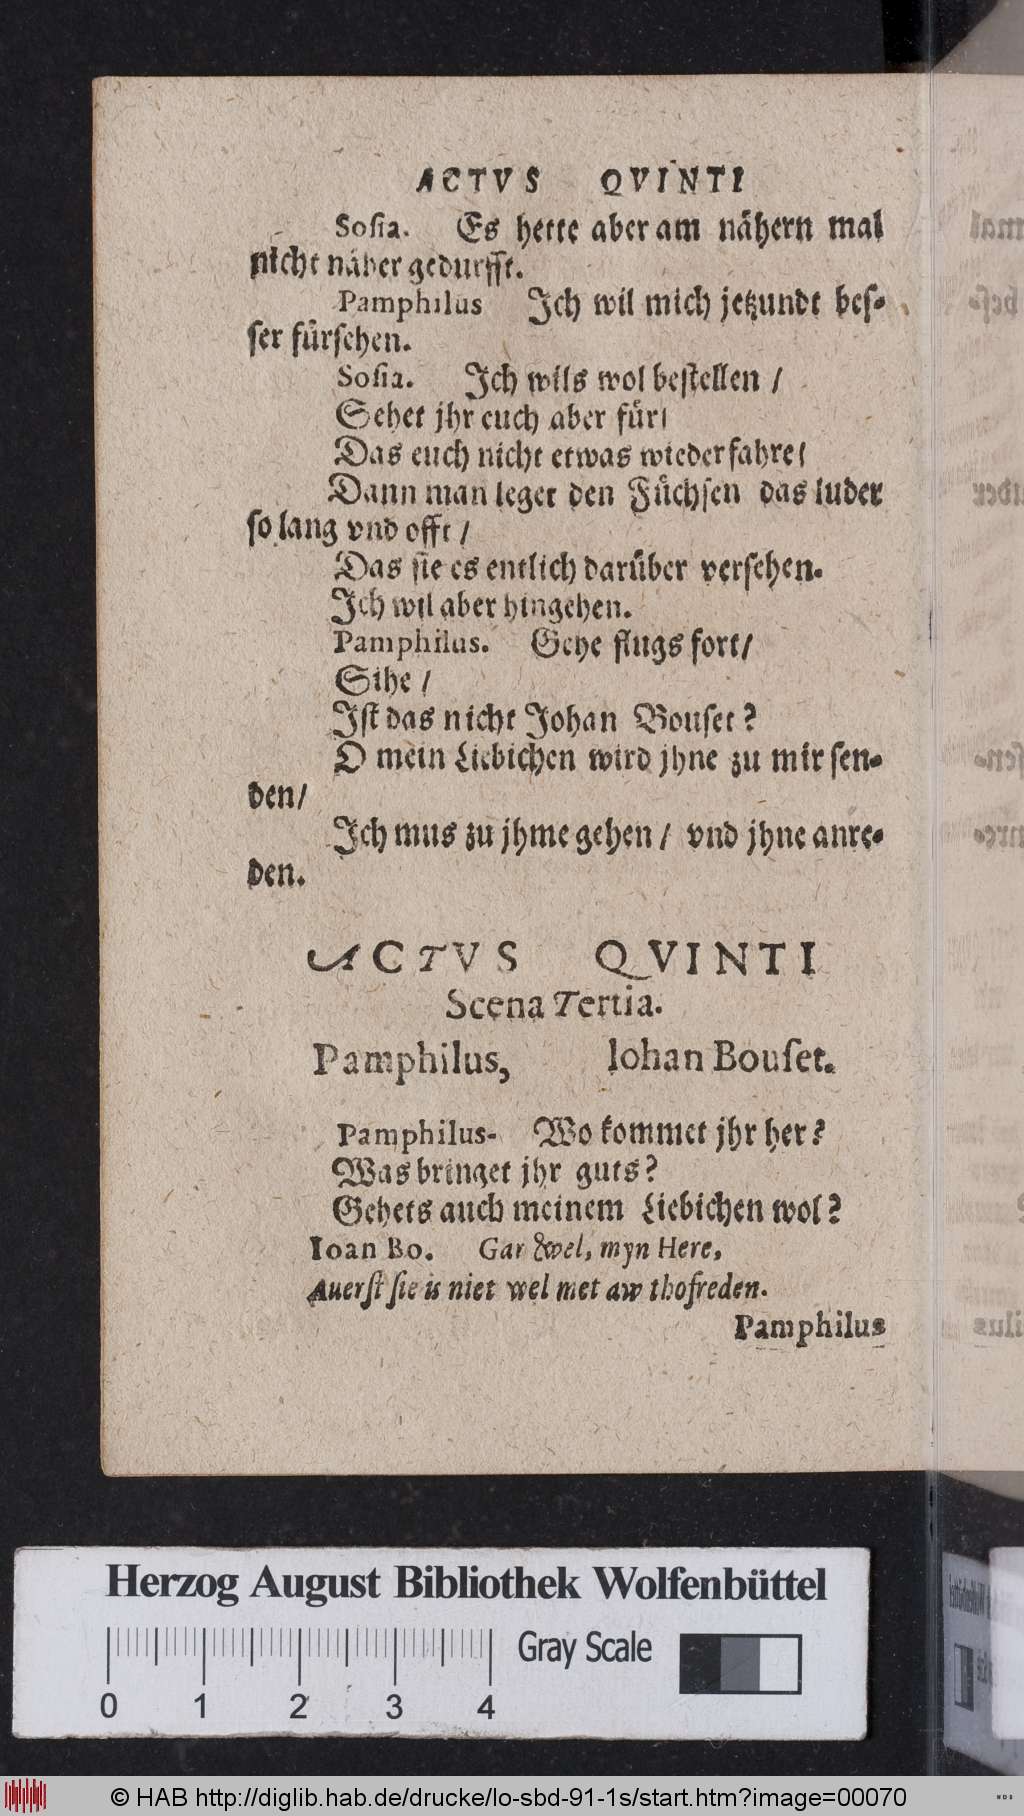 ACTVS QVINTI
Soſia. Es hette aber am nähern mal
nicht näher gedurfft.
Pamphilus Jch wil mich jetzundt beſ-
ſer fürſehen.
Soſia. Jch wils wol beſtellen /
Sehet jhr euch aber für/
Das euch nicht etwas wiederfahre/
Dann man leget den Füchſen das luder
ſo lang vnd offt /
Das ſie es entlich darüber verſehen.
Jch wil aber hingehen.
Pamphilus. Gehe flugs fort/
Sihe /
Jſt das nicht Johan Bouſet?
O mein Liebichen wird jhne zu mir ſen-
den/
Jch mus zu jhme gehen / vnd jhne anre-
den.
ACTVS QVINTI
Scena Tertia.
Pamphilus, Iohan Bouſet.
Pamphilus- Wo kommet jhr her?
Was bringet jhr guts?
Gehets auch meinem Liebichen wol?
Ioan Bo. Gar wel, myn Here,
Auerſt ſie is niet wel met aw thofreden.
Pamphilus
Herzog August Bibliothek Wolfenbüttel
Gray Scale
0 1 2 3 4
© HAB http://diglib.hab.de/drucke/lo-sbd-91-1s/start.htm?image=00070